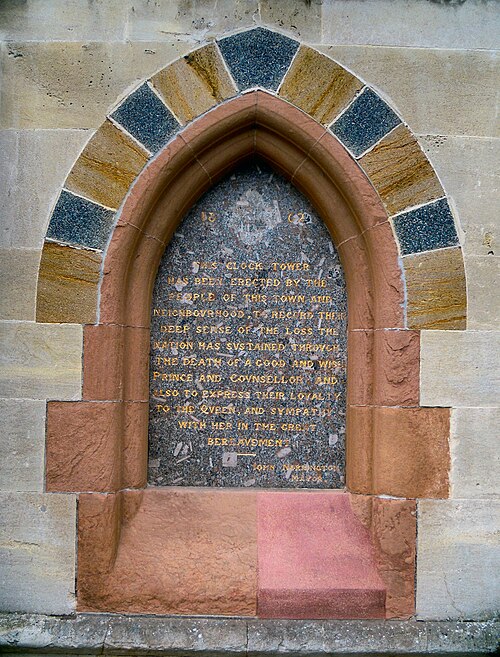 18 62
THIS CLOCK TOWER
HAS BEEN ERECTED BY THE
PEOPLE OF THIS TOWN AND
NEIGHBOVRHOOD, TO RECORD THEIR
DEEP SENSE OF THE LOSS THE
NATION HAS SVSTAINED THROVGH
THE DEATH OF A GOOD AND WISE
PRINCE AND COVNSELLOR AND
ALSO TO EXPRESS THEIR LOYALTY
TO THE QVEEN, AND SYMPATHY
WITH HER IN THE GREAT
BEREAVEMENT
JOHN
MAYOR